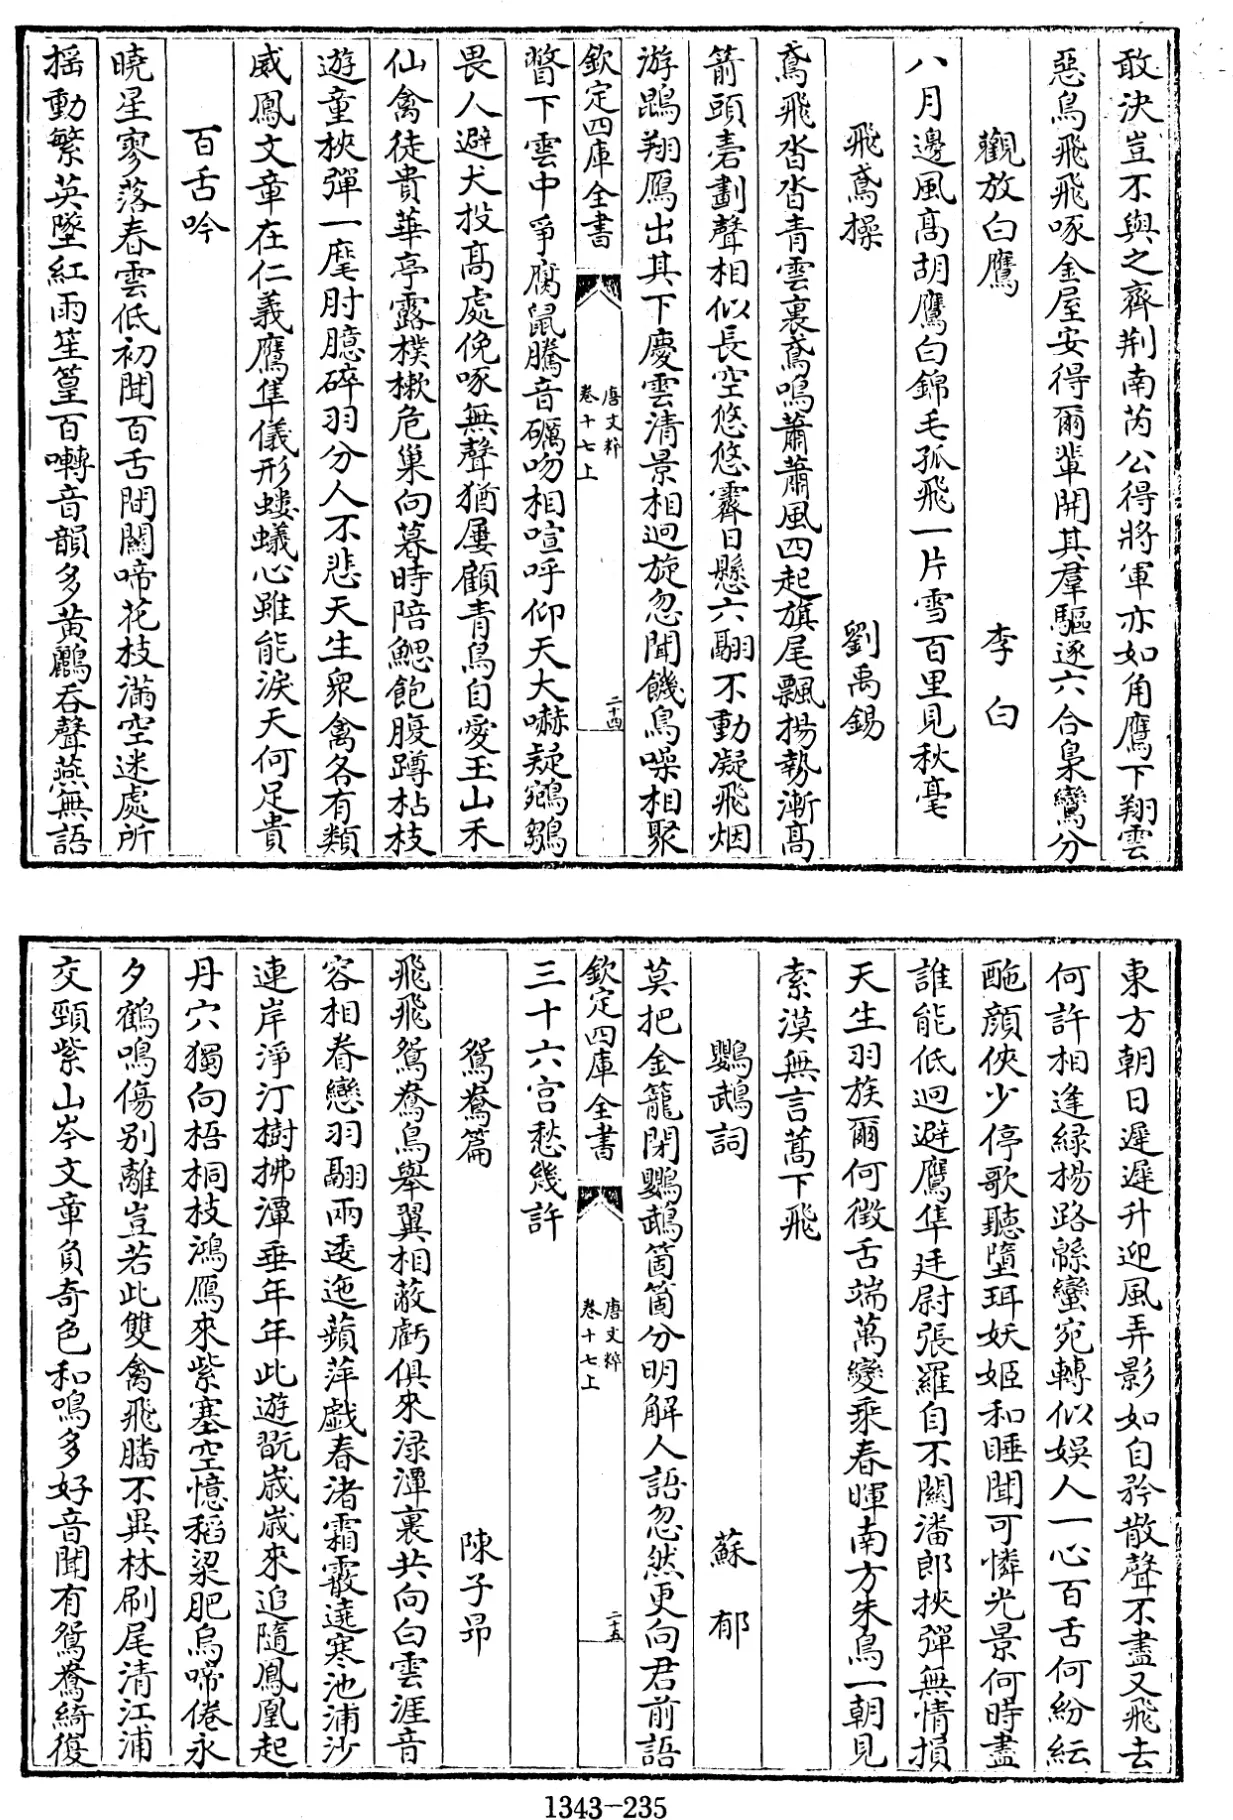 敢決豈不與之齊荆南芮公得將軍亦如角鷹下翔雲
惡鳥飛飛啄金屋安得爾輩開其羣驅逐六合梟鸞分
觀放白鷹 李白
八月邊風髙胡鷹白錦毛孤飛一片雪百里見秋毫
飛鳶操 劉禹錫
鳶飛杳杳青雲裏鳶鳴蕭蕭風四起旗尾飄揚勢漸髙
箭頭砉劃聲相似長空悠悠霽日懸六翮不動凝飛烟
游鵾翔鴈出其下慶雲清景相迴旋忽聞飢鳥噪相聚
欽定四庫全書 唐文粹 卷十七上 二十四
瞥下雲中爭腐鼠騰音礪吻相喧呼仰天大嚇疑鵷鶵
畏人避犬投髙處俛啄無聲猶屢顧青鳥自愛玉山禾
仙禽徒貴華亭露樸樕危巢向暮時陪鰓飽腹蹲枯枝
遊童挾彈一麾肘臆碎羽分人不悲天生衆禽各有類
威鳳文章在仁義鷹隼儀形螻蟻心雖能淚天何足貴
百舌吟
曉星寥落春雲低初聞百舌間闗啼花枝滿空迷處所
揺動繁英墜紅雨笙篁百囀音韻多黄鸝呑聲燕無語
東方朝日遲遲升迎風弄影如自矜散聲不盡又飛去
何許相逢緑楊路緜蠻宛轉似娱人一心百舌何紛紜
酡顔俠少停歌聽墮珥妖姬和睡聞可憐光景何時盡
誰能低迴避鷹隼廷尉張羅自不闗潘郎挾彈無情損
天生羽族爾何微舌端萬變乘春暉南方朱鳥一朝見
索漠無言蒿下飛
鸚鵡詞 蘇郁
莫把金籠閉鸚鵡箇箇分明解人語忽然更向君前語
欽定四庫全書 唐文粹 卷十七上 二十五
三十六宫愁幾許
鴛鴦篇 陳子昻
飛飛鴛鴦鳥舉翼相蔽虧俱來渌潭裏共向白雲涯音
容相眷戀羽翮兩逶迤蘋萍戲春渚霜霰遶寒池浦沙
連岸淨汀樹拂潭垂年年此遊翫歳歳來追隨鳳凰起
丹穴獨向梧桐枝鴻鴈來紫塞空憶稻粱肥烏啼倦永
夕鶴鳴傷别離豈若此雙禽飛翻不異林刷尾清江浦
交頸紫山岑文章負奇色和鳴多好音聞有鴛鴦綺復
1343-235